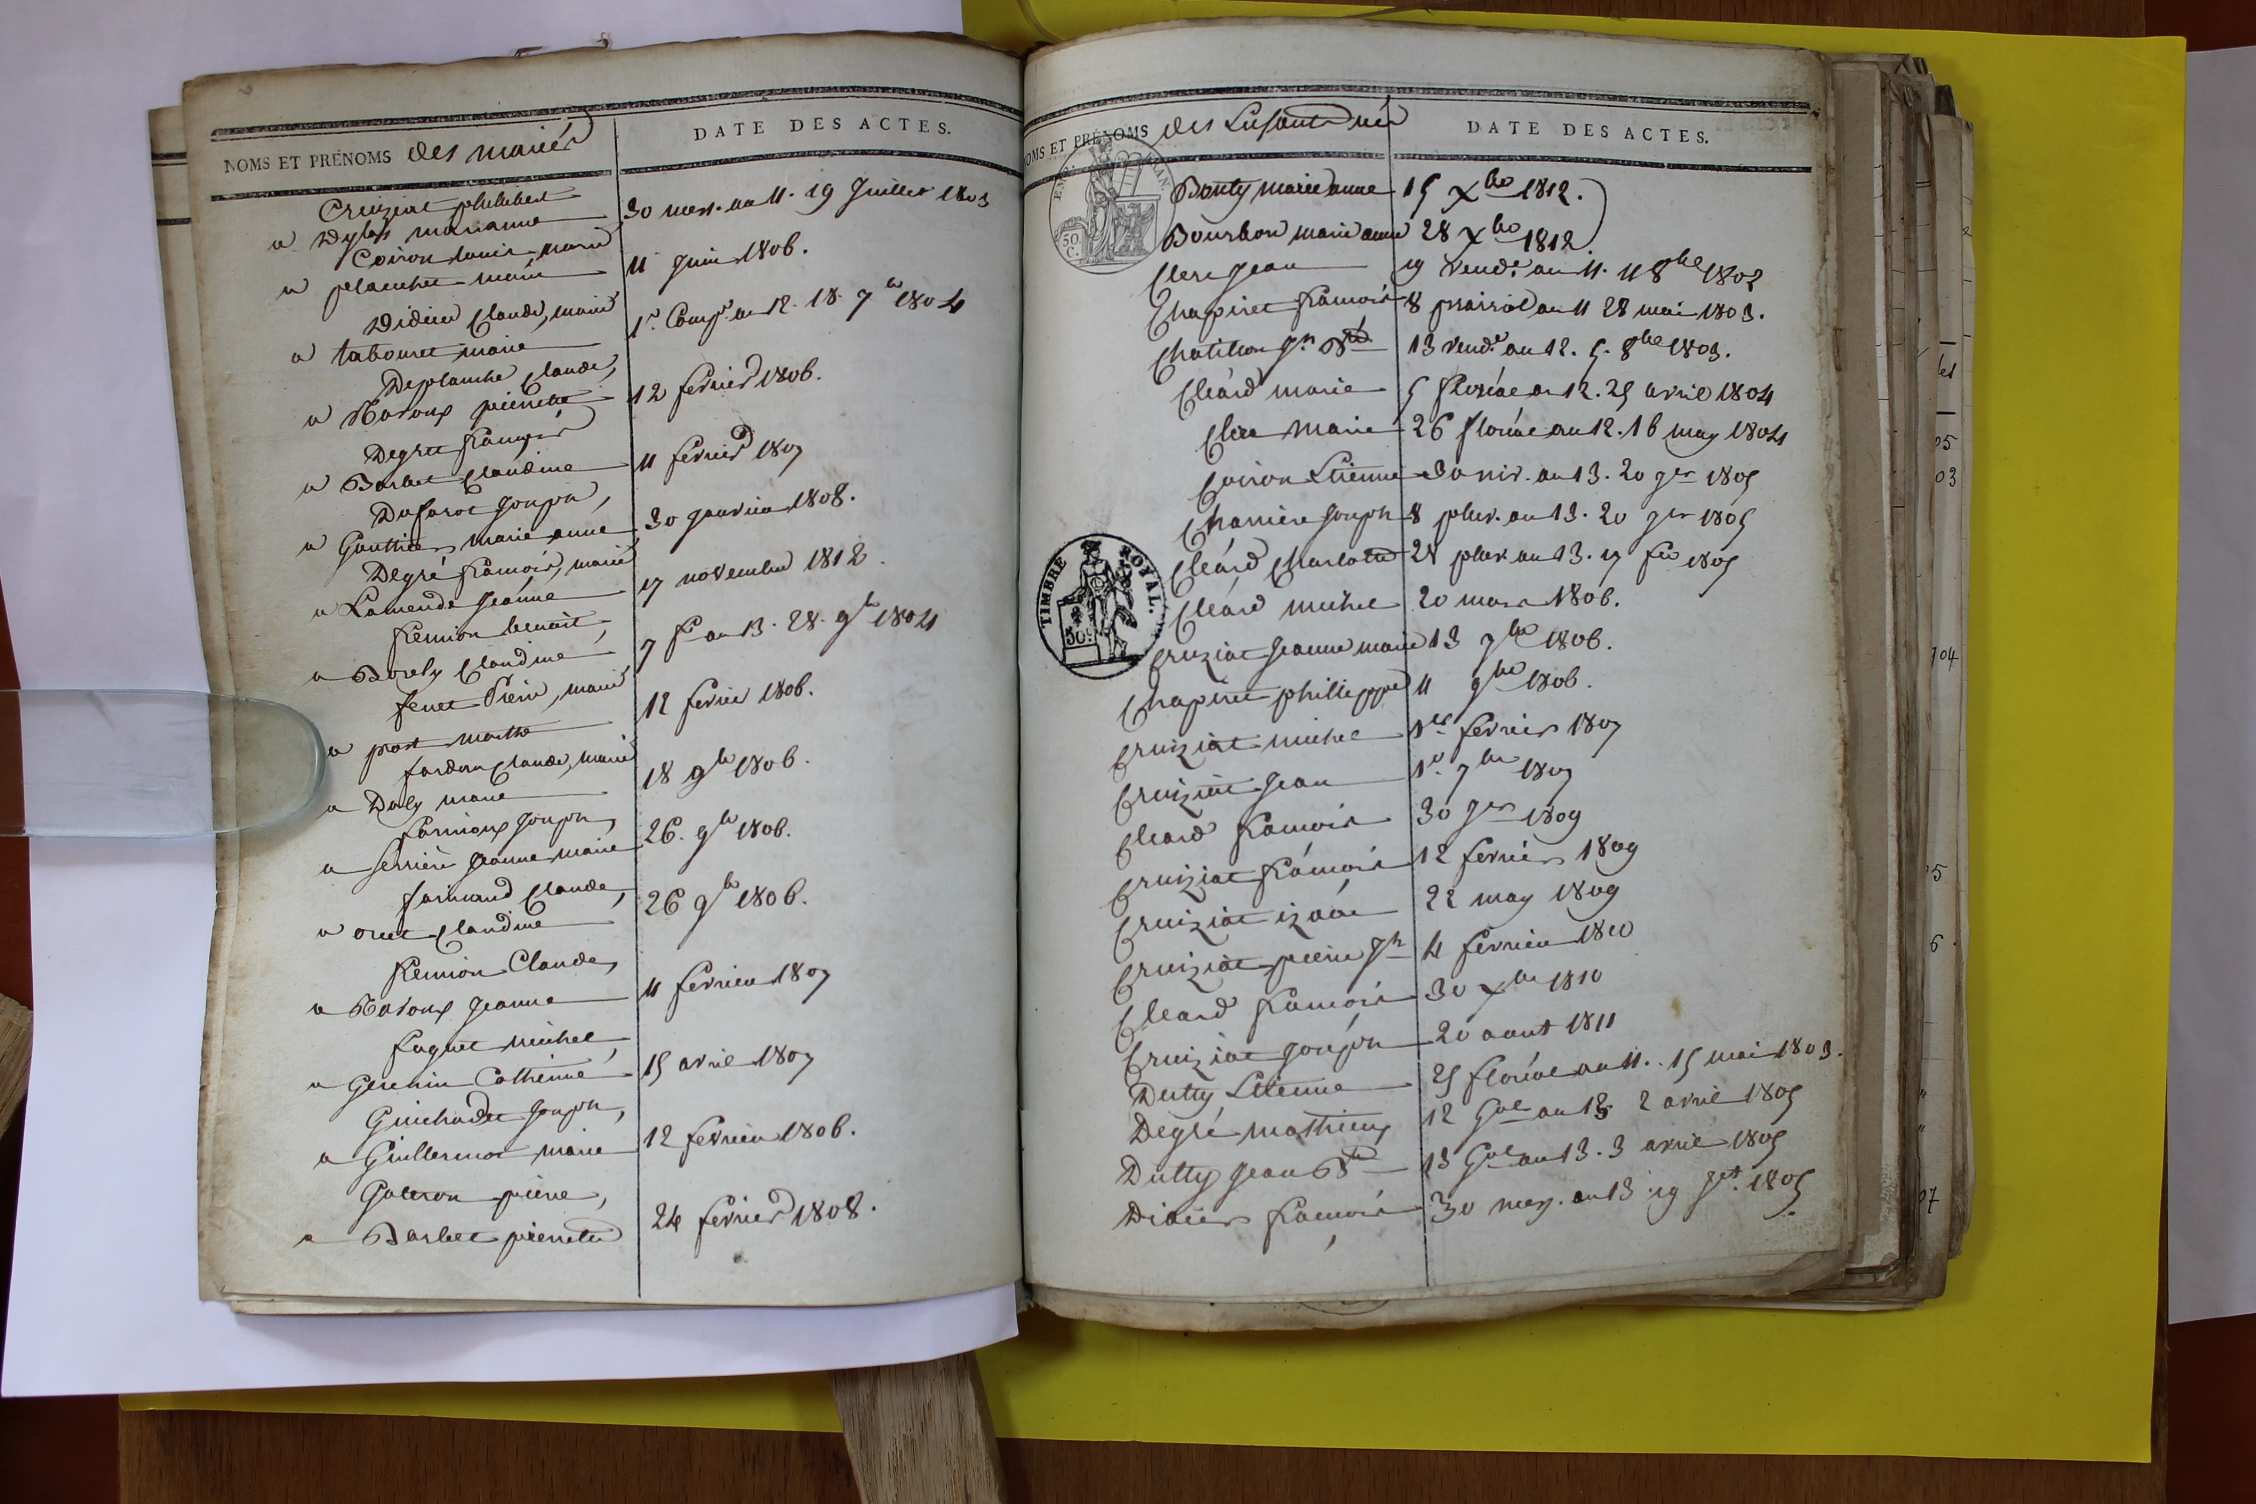 NOMS ET PRÉNOMS des mariés
DATE DES ACTES.
Cruziat philibert
a Dylas marianne
30 mess. an 11. 19 Juillet 1803
Coiron Louis, marié
a planchet marie
11 Juin 1806.
Didier Claude, marié
a tabouret marie
1er Comp. an 12. 18 7bre 1804
Deplanche Claude,
a Naroux pierrette
12 fevrier 1806.
Degret françois
a Barbet Claudine
11 fevrier 1807
Dufaroc Joseph,
a Gauthier marie anne
30 janvier 1808.
Degré francois, marié
a Lamende Jeanne
17 novembre 1812.
femion benoit,
a Borely Claudine
7 fre an 13. 28 9bre 1804
fenet Pierre, marié
a post marthe
12 fevrier 1806.
fardon Claude, marié
a Daly marie
18 9bre 1806.
farnioux Joseph,
a serrière Jeanne marie
26. 9bre 1806.
farinand Claude,
a oruet Claudine
26 9bre 1806.
femion Claude,
a Naroux Jeanne
11 fevrier 1807
fuguet michel,
a Guerin Catherine
15 avril 1807
Guichardet Joseph,
a Guillermot marie
12 fevrier 1806.
Galeron pierre,
a Barbet pierrette
24 fevrier 1808.
NOMS ET PRÉNOMS des Enfants nés
DATE DES ACTES.
Bonty marie anne 15 Xbre 1812.
Bourbon marie anne 28 Xbre 1812.
Clerc Jean 19 vend.re an 11. 11 8bre 1802
Chapiret francois 8 prairial an 11 28 mai 1803.
Chatillon Jn Bte 13 vend.re an 12. 5. 8bre 1803.
Cléard marie 5 floréal an 12. 25 avril 1804
Clere Marie 26 floréal an 12. 16 may 1804
Coiron Etienne 30 niv. an 13. 20 Jer 1805
Charriere Joseph 8 pluv. an 13. 20 Jer 1805
Cléard Charlotte 28 pluv. an 13. 17 fer 1805
Cléard michel 20 mars 1806.
Cruziat Jeanne marie 13 7bre 1806.
Chapiret philippe 11 9bre 1806.
Cruiziat michel 1er fevrier 1807
Cruiziat Jean 1er 7bre 1807
Cleard francois 30 Jer 1809
Cruiziat francois 12 fevrier 1809
Cruiziat izaac 22 may 1809
Cruiziat pierre Jh 4 fevrier 1810
Cleard francois 30 Xbre 1810
Cruiziat Joseph 20 aout 1811
Dutty Etienne 25 floréal an 11. 15 mai 1803.
Degré mathieu 12 Gal an 13 2 avril 1805
Dutty Jean Bte 13 Gal an 13. 3 avril 1805
Didier francois 30 mess. an 13. 19 Jet 1805.
TIMBRE ROYAL.
50 C.
50 C.